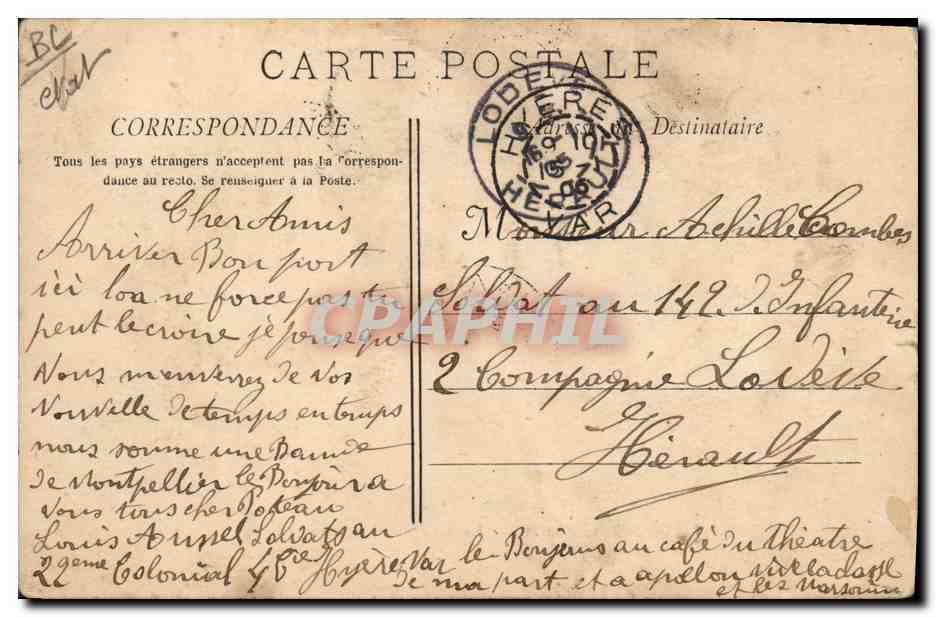 BC
CARTE POSTALE
CORRESPONDANCE
Adresse du Destinataire
Tous les pays étrangers n'acceptent pas la Correspon-
dance au recto. Se renseigner à la Poste.
LODEVE
HERAULT
HYERES
VAR
Cher Amis
Arriver Bon port
ici loa ne force pas tu
peut le croire jè pense que
Vous m'enverrez de vos
Nouvelle de temps en temps
nous somme une Bande
de Montpellier le Bonjour a
vous tous cher Poteau
Louis Aussel Soldats au
22eme Colonial 4 Cie Hyère Var le Bonjour au café du théatre
de ma part et a apollon
et les
Monsieur Achille Combes
Soldat au 142 d'Infanterie
2 Compagnie Lodève
Hérault
CPAPHIL